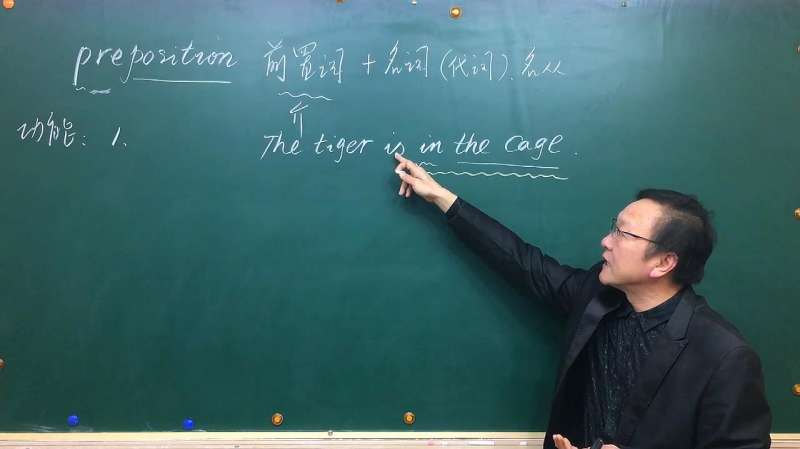 preposition 前置词 + 名词 (代词). 名从
介
功能: 1. The tiger is in the cage.